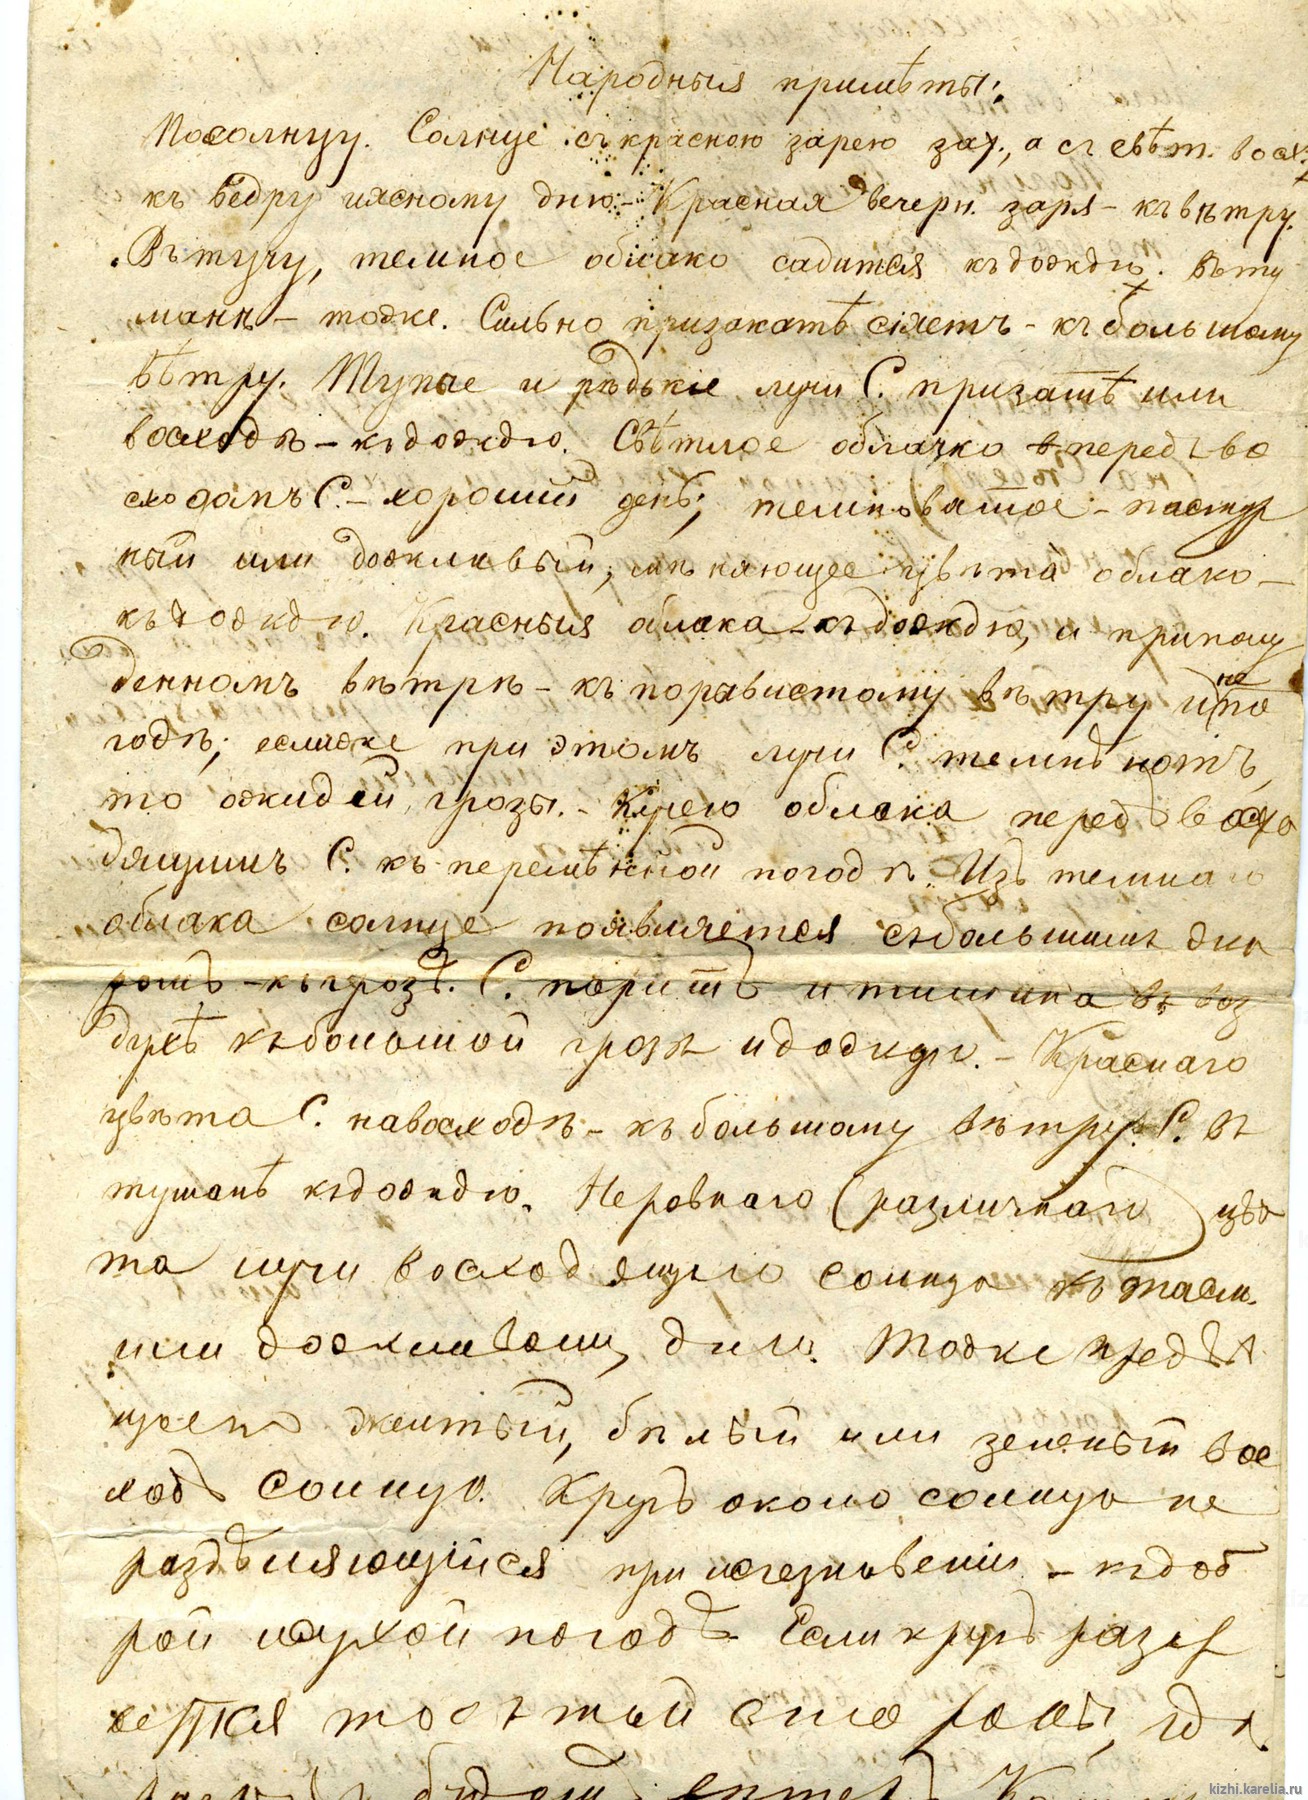 Народныя примѣты:
Посолнцу. Солнце съ красною зарею зах., а съ свѣт. восх.
къ ведру иясному дню – Красная вечерн. заря – къ вѣтру.
Въ тучу, темное облако садится къ дождю. Въ ту
манѣ – тоже. Сильно призакатѣ сіяетъ – къ большому
вѣтру. Тупые и рѣдькіе лучи С. призатѣ или
восходѣ – къ дождю. Свѣтлое облачко впередъ во
сходомъ С. – хорошій день; темноватое – пасмур
ный или дожливый; мѣняющее цвѣта облако –
къ дождю. Красныя облака – къ дождю, и приполу
денномъ вѣтрѣ – къ поравистому вѣтру и непо
годѣ; еслиже при этомъ лучи С. темнѣютъ,
то ожидай грозы. – облака передъ восхо
дящимъ С. къ перемѣнной погодѣ. Изъ темнаго
облака солнце появляется съ большимъ жа
ромъ – къ грозѣ. С. паритъ и тишина въ воз
духѣ къ большой грозѣ и дождю. – Краснаго
цвѣта С. навосходѣ – къ большому вѣтру. С. въ
туманѣ къ дождю. Неровнаго (различнаго) цвѣ
та лучи восходящаго солнца къ пасм.
или дожливому дню. Тоже предвѣ
щаетъ желтый, бѣлый или зеленый вос
ходъ солнца. Кругъ около солнца не
раздѣляющійся при исчезновеніи – къ доб
рой исухой погодѣ Если кругъ разор
вется то съ той стороны, гдѣ
будетъ вѣтеръ
kizhi.karelia.ru